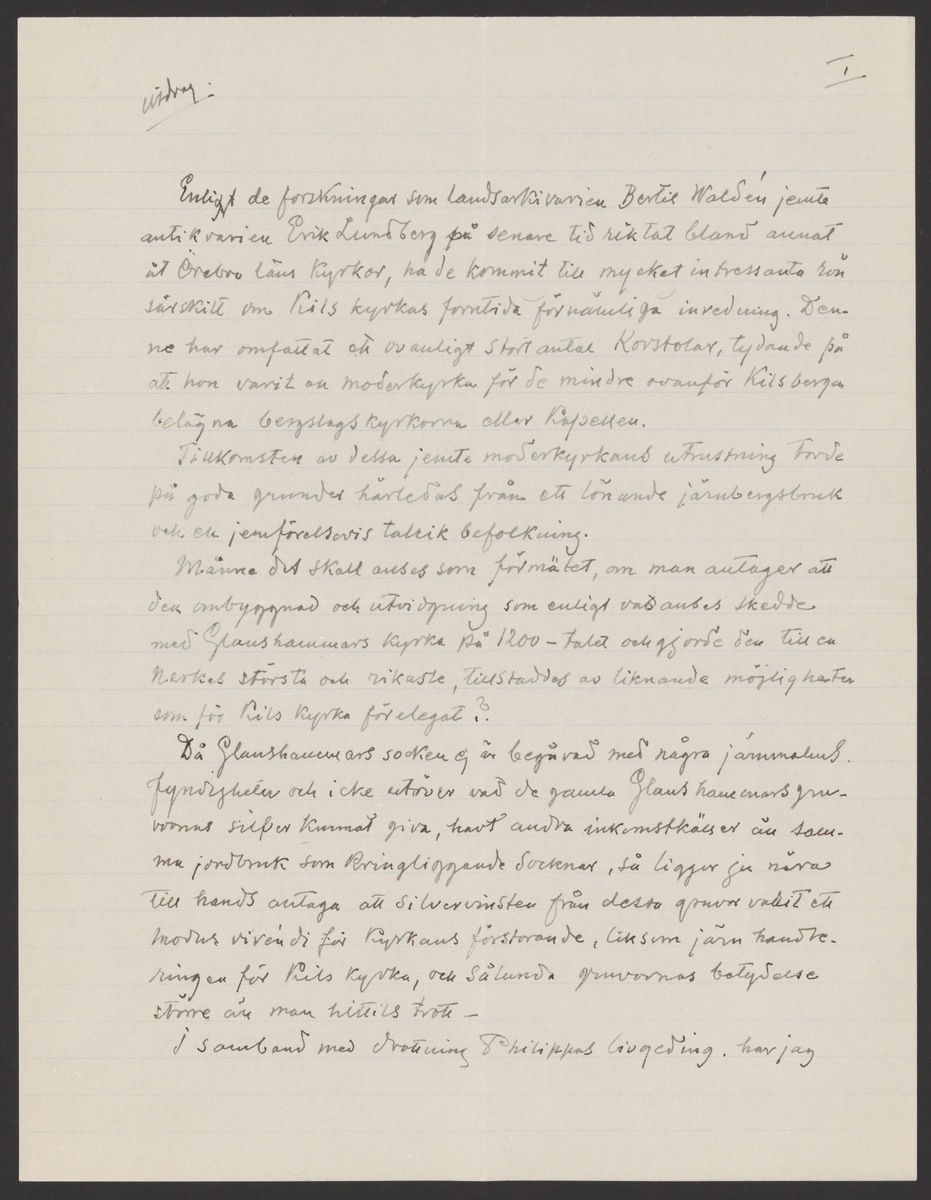 I
utdrag:
Enligt de forskningar som landsarkivarien Bertil Waldén jemte
antikvarien Erik Lundberg på senare tid riktat bland annat
åt Örebro läns kyrkor, ha de kommit till mycket intressanta rön
särskilt om Kils kyrkas forntida förnämliga inredning. Den-
ne har omfattat ett ovanligt stort antal Korstolar, tydande på
att hon varit en moderkyrka för de mindre ovanför Kilsbergen
belägna bergslagskyrkorna eller Kapellen.
Tillkomsten av dessa jemte moderkyrkans utrustning torde
på goda grunder härledas från ett lönande järnbergsbruk
och en jemförelsevis talrik befolkning.
Månne det skall anses som förmätet, om man antager att
den ombyggnad och utvidgning som enligt vad anses skedde
med Glanshammars kyrka på 1200-talet och gjorde den till en
Nerkes största och rikaste, tillstaddes av liknande möjligheter
som för Kils kyrka förelegat?.
Då Glanshammars socken ej är begåvad med några järnmalms.
fyndigheter och icke utöver vad de gamla Glanshammarsgru-
vornas silfver kunnat giva, havt andra inkomstkällser än sam-
ma jordbruk som kringliggande socknar, så ligger ju nära
till hands antaga att silvervinsten från dessa gruvor varit ett
modus vivéndi för kyrkans förstorande, liksom järnhandte-
ringen för Kils kyrka, och sålunda gruvornas betydelse
större än man hittils trott –
I samband med drottning Philippas livgeding. har jag